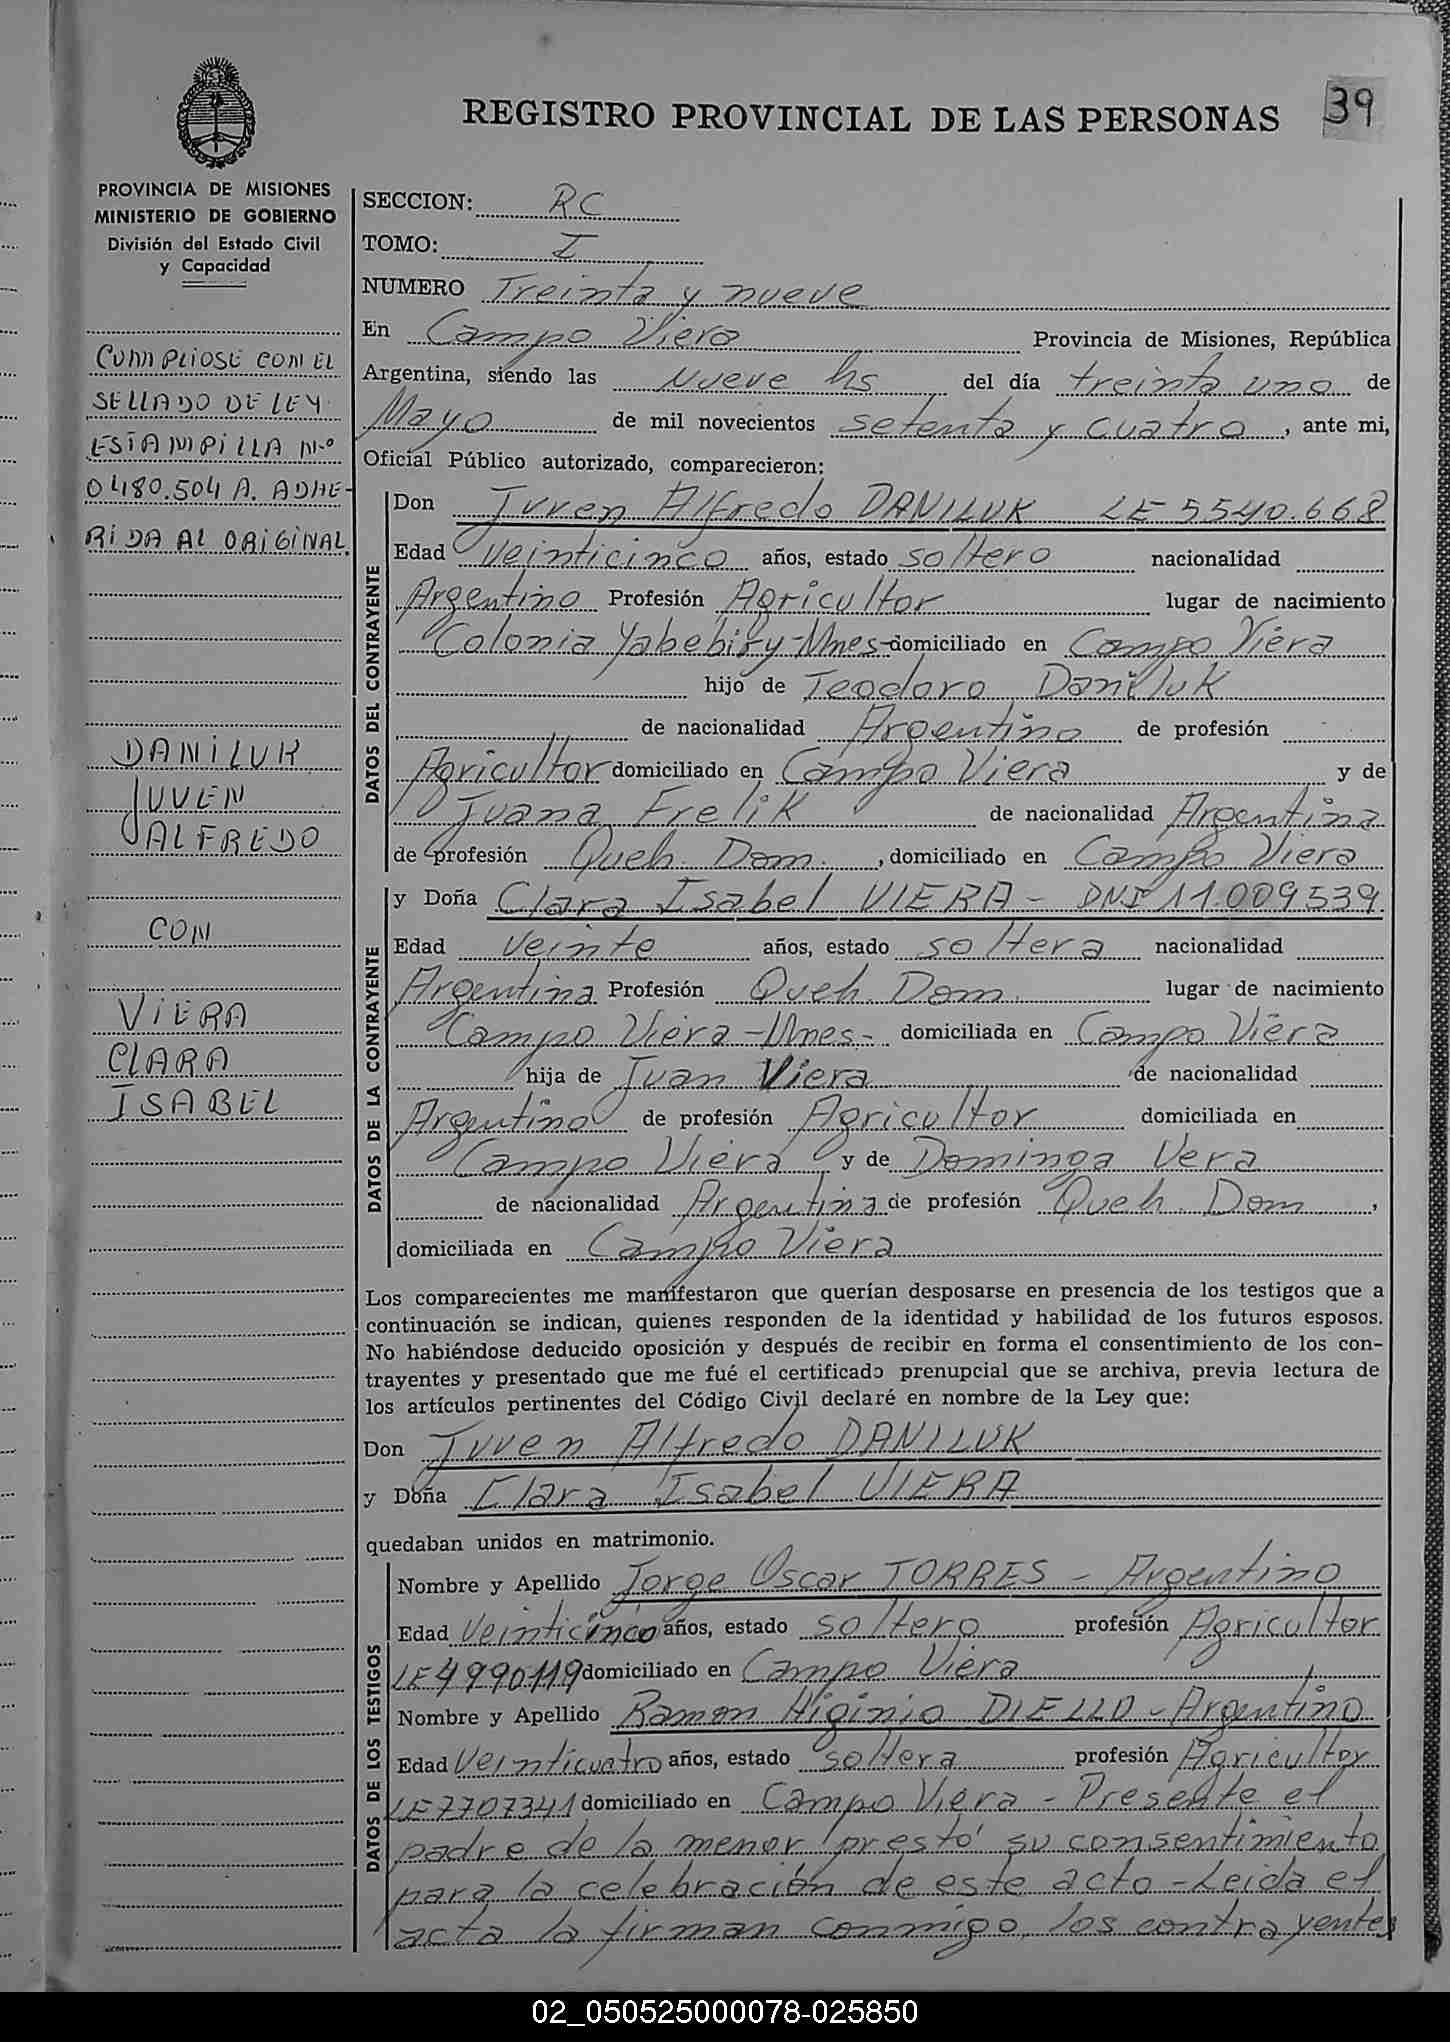 REGISTRO PROVINCIAL DE LAS PERSONAS
39
PROVINCIA DE MISIONES
MINISTERIO DE GOBIERNO
División del Estado Civil
y Capacidad
CUMPLIOSE CON EL
SELLADO DE LEY
ESTAMPILLA Nº
0480.504 A. ADHE-
RIDA AL ORIGINAL.
DANILUK
JUVEN
ALFREDO
CON
VIERA
CLARA
ISABEL
SECCION: RC
TOMO: I
NUMERO Treinta y nueve
En Campo Viera Provincia de Misiones, República
Argentina, siendo las Nueve hs del día treinta uno de
Mayo de mil novecientos setenta y cuatro, ante mi,
Oficial Público autorizado, comparecieron:
DATOS DEL CONTRAYENTE
Don Juven Alfredo DANILUK LE 5540.668
Edad veinticinco años, estado soltero nacionalidad
Argentino Profesión Agricultor lugar de nacimiento
Colonia Yabebiry-Mnes- domiciliado en Campo Viera
hijo de Teodoro Daniluk
de nacionalidad Argentino de profesión
Agricultor domiciliado en Campo Viera y de
Juana Frelik de nacionalidad Argentina
de profesión Queh. Dom., domiciliado en Campo Viera
DATOS DE LA CONTRAYENTE
y Doña Clara Isabel VIERA - DNI 11.009539
Edad veinte años, estado soltera nacionalidad
Argentina Profesión Queh. Dom. lugar de nacimiento
Campo Viera-Mnes- domiciliada en Campo Viera
hija de Juan Viera de nacionalidad
Argentino de profesión Agricultor domiciliada en
Campo Viera y de Dominga Vera
de nacionalidad Argentina de profesión Queh. Dom,
domiciliada en Campo Viera
Los comparecientes me manifestaron que querían desposarse en presencia de los testigos que a
continuación se indican, quienes responden de la identidad y habilidad de los futuros esposos.
No habiéndose deducido oposición y después de recibir en forma el consentimiento de los con-
trayentes y presentado que me fué el certificado prenupcial que se archiva, previa lectura de
los artículos pertinentes del Código Civil declaré en nombre de la Ley que:
Don Juven Alfredo DANILUK
y Doña Clara Isabel VIERA
quedaban unidos en matrimonio.
DATOS DE LOS TESTIGOS
Nombre y Apellido Jorge Oscar TORRES - Argentino
Edad Veinticinco años, estado soltero profesión Agricultor
LE4990119 domiciliado en Campo Viera
Nombre y Apellido Ramon Higinio DIELLO - Argentino
Edad Veinticuatro años, estado soltera profesión Agricultor
LE7707341 domiciliado en Campo Viera - Presente el
padre de la menor prestó su consentimiento
para la celebración de este acto - Leida el
acta la firman conmigo, los contrayentes
02_050525000078-025850